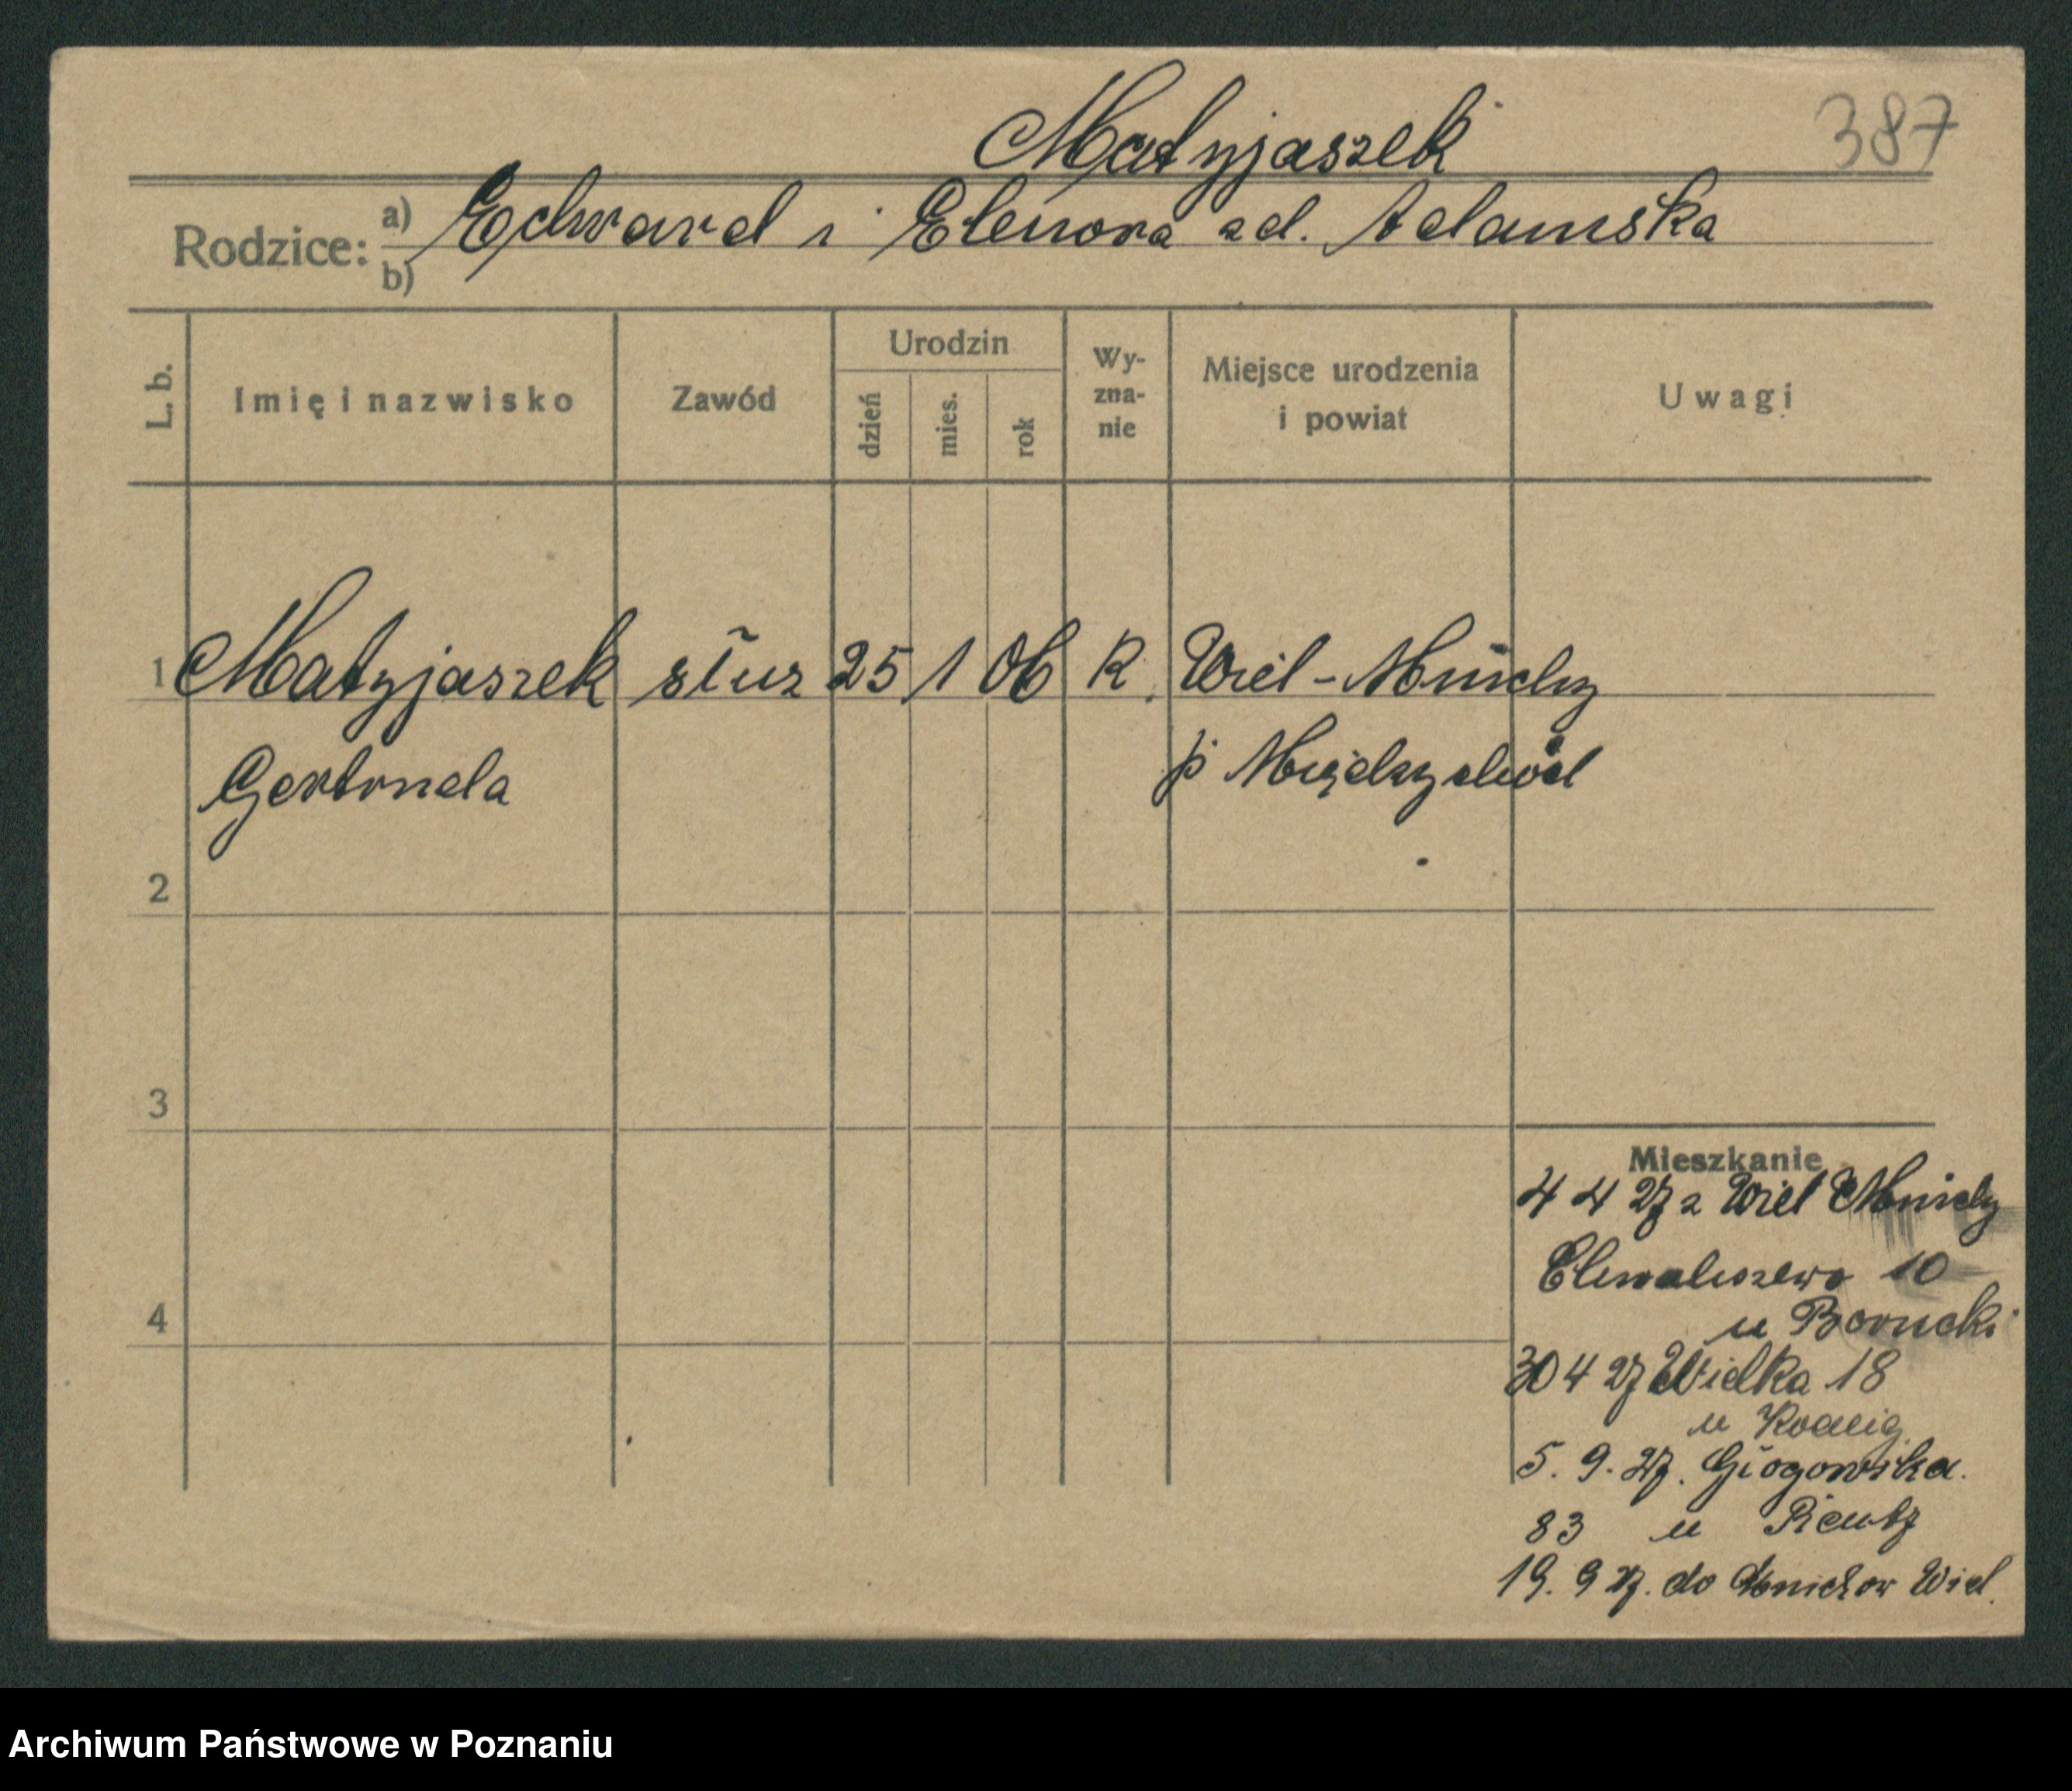 Matyjaszek 387
Rodzice: a) Edward i Elenora zd. Adamska
b)
L. b. Imię i nazwisko Zawód Urodzin dzień mies. rok Wy-zna-nie Miejsce urodzenia i powiat Uwagi
1 Matyjaszek służ 25 1 06 R. Wiel-Mnichy
Gertruda p Międzychód
2
3
4
Mieszkanie
4 4 27 z Wiel Mnichy
10
u Borucki
30 4 27 Wielka 18
u
5. 9. 27. Głogowska.
83 u
19. 9 27. do Mnichów Wiel.
Archiwum Państwowe w Poznaniu